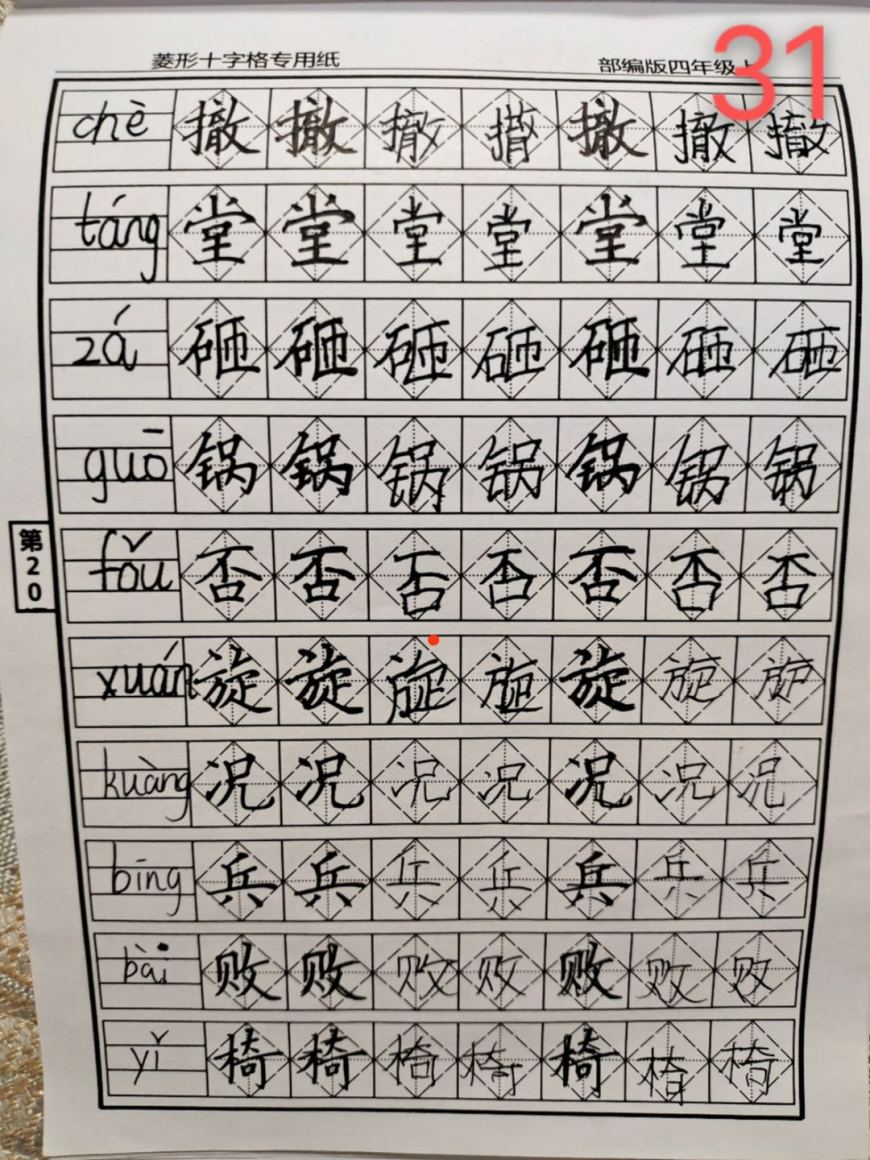 31
菱形十字格专用纸 部编版四年级上
chè 撤 撤 撤 撤 撤 撤 撤
táng 堂 堂 堂 堂 堂 堂 堂
zá 砸 砸 砸 砸 砸 砸 砸
guō 锅 锅 锅 锅 锅 锅 锅
fǒu 否 否 否 否 否 否 否
xuán 旋 旋 旋 旋 旋 旋 旋
kuàng 况 况 况 况 况 况 况
bīng 兵 兵 兵 兵 兵 兵 兵
bài 败 败 败 败 败 败 败
yǐ 椅 椅 椅 椅 椅 椅 椅
第20